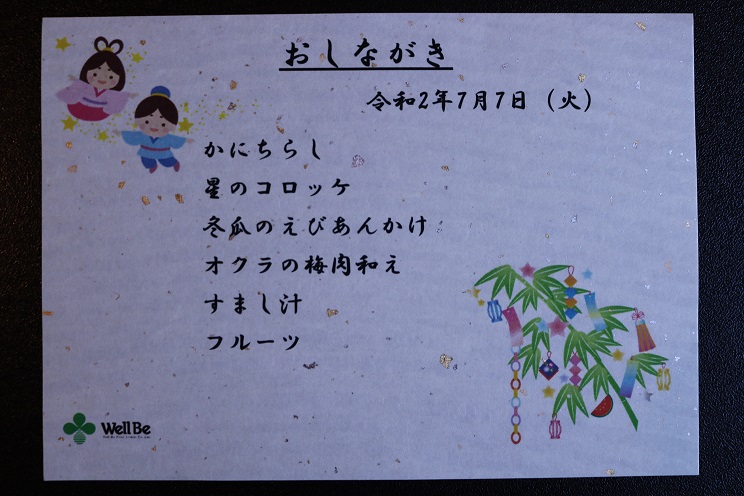 おしながき
令和2年7月7日（火）
かにちらし
星のコロッケ
冬瓜のえびあんかけ
オクラの梅肉和え
すまし汁
フルーツ
WellBe